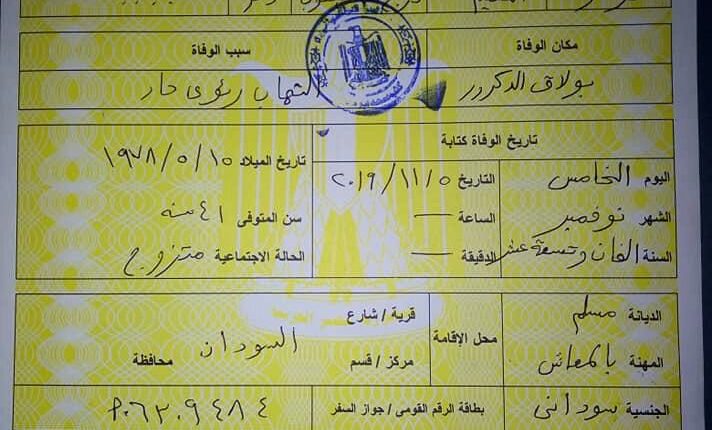 مكان الوفاة سبب الوفاة
بولاق الدكرور التهاب رئوى حاد
تاريخ الوفاة كتابة
اليوم الخامس التاريخ ٢٠١٩/١١/٥ تاريخ الميلاد ١٩٧٨/٥/١٥
الشهر نوفمبر الساعة — سن المتوفى ٤١ سنه
السنة الفان وتسعة عشر الدقيقة — الحالة الاجتماعية متزوج
الديانة مسلم محل الإقامة قرية / شارع
المهنة بالمعاش مركز / قسم السودان محافظة
الجنسية سودانى بطاقة الرقم القومى / جواز السفر